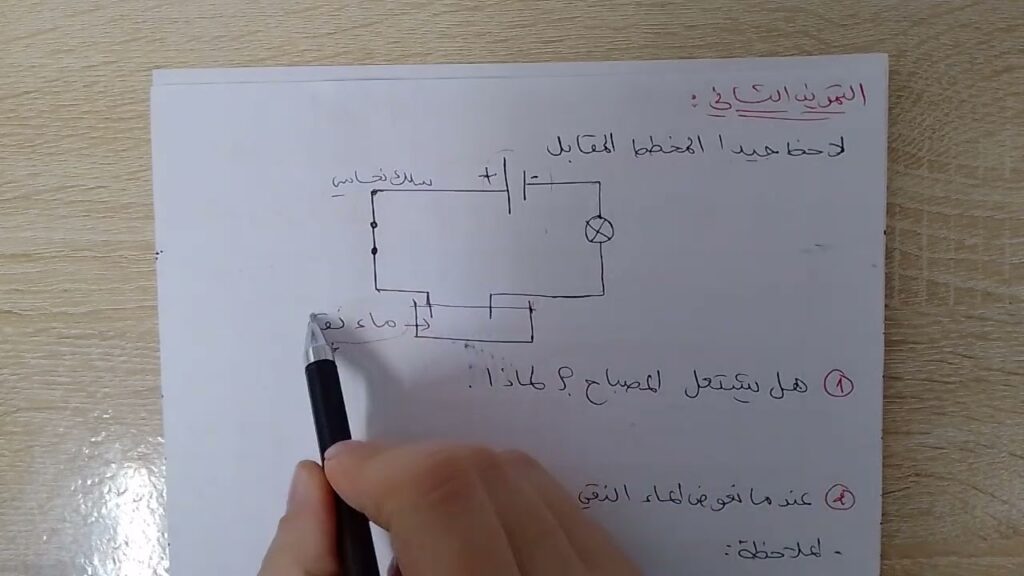 التمرين الثاني :
لاحظ جيدا المخطط المقابل
سلك نحاسي
+ -
ماء نقـ
① هل يشتعل المصباح ؟ لماذا ؟
② عندما نعوض الماء النقي
- الملاحظة :